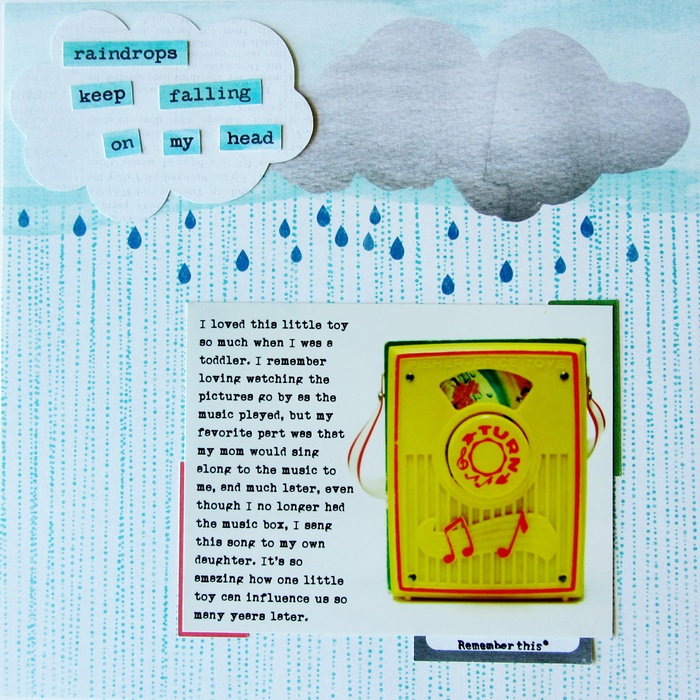 raindrops
keep falling
on my head
I loved this little toy
so much when I was a
toddler. I remember
loving watching the
pictures go by as the
music played, but my
favorite part was that
my mom would sing
along to the music to
me, and much later, even
though I no longer had
the music box, I sang
this song to my own
daughter. It's so
amazing how one little
toy can influence us so
many years later.
TURN
Remember this*